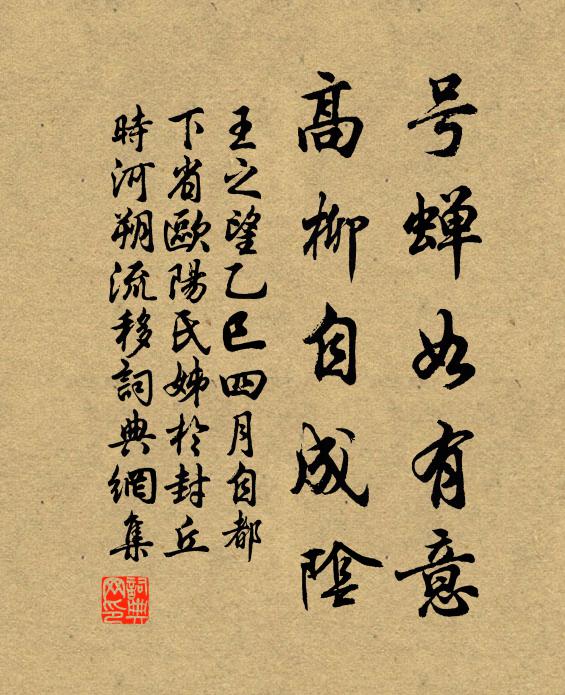 号蝉如有意
高柳自成陰
王之望乙巳四月自都
下省歐陽氏姊於封丘
時河朔流移詞典網集
詞典网印